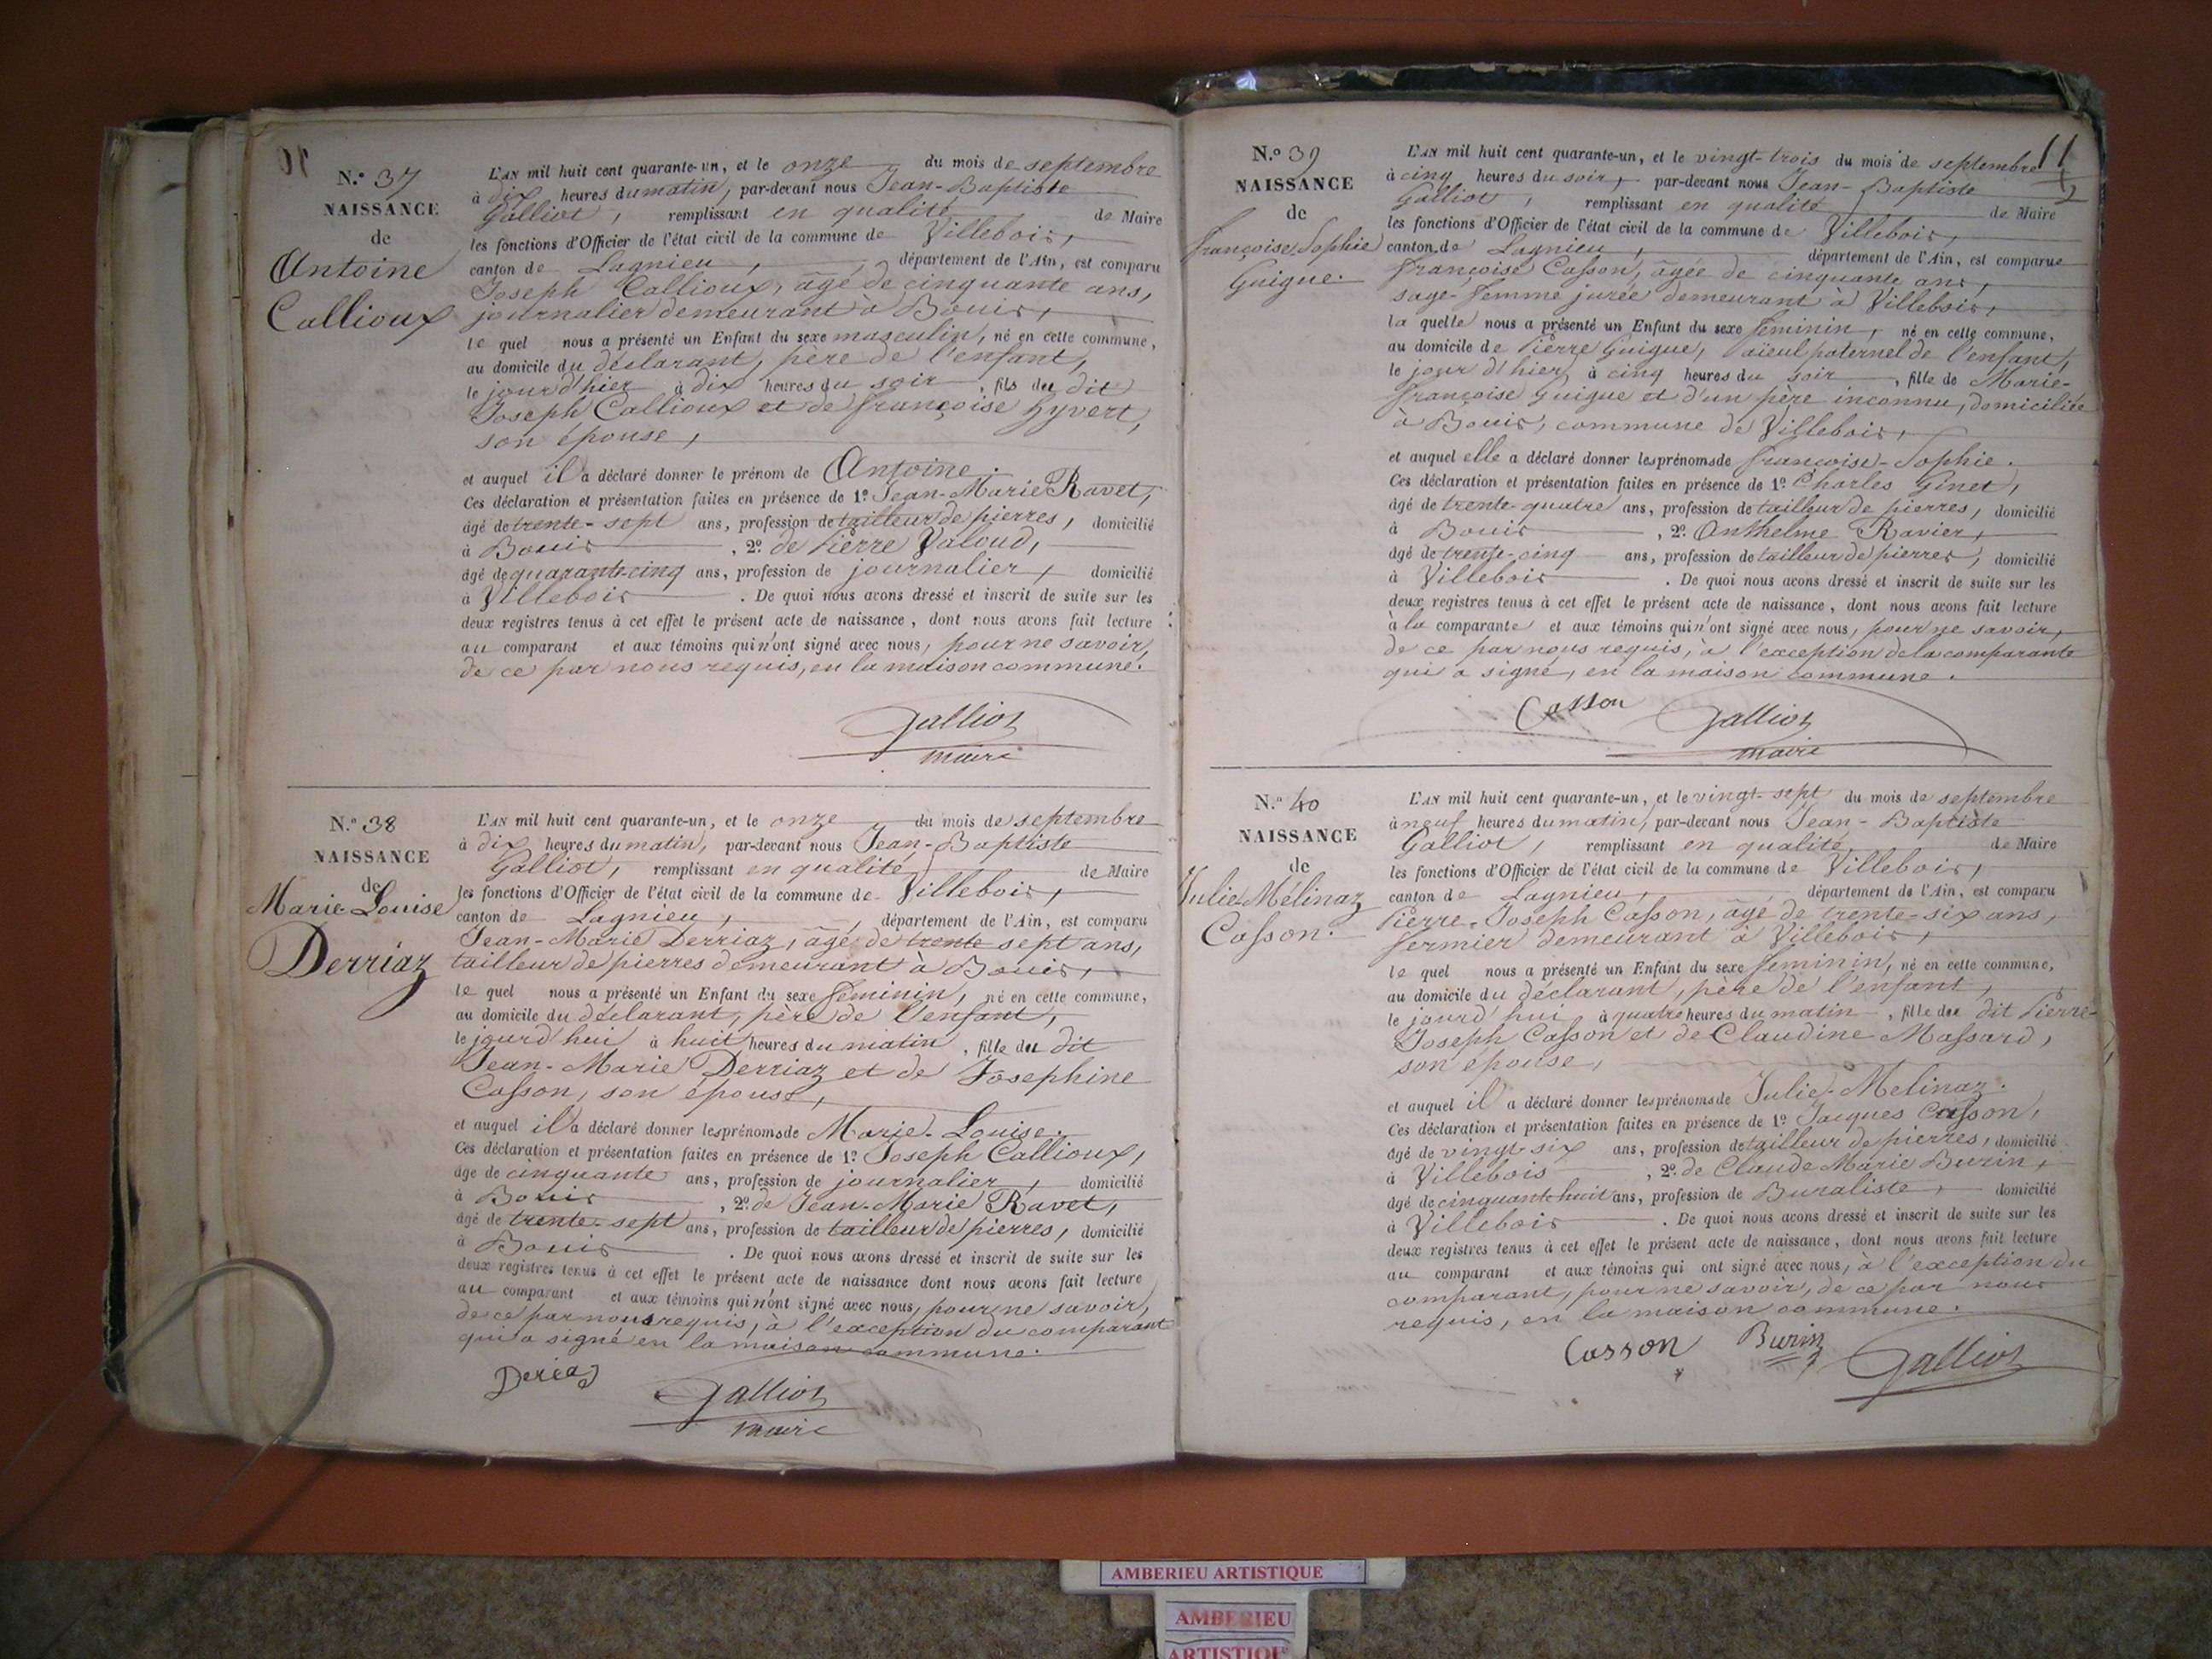 N.º 37
NAISSANCE
de
Antoine
Callioux
L'AN mil huit cent quarante-un, et le onze du mois de septembre
à dix heures du matin, par-devant nous Jean-Baptiste
Galliot, remplissant en qualité de Maire
les fonctions d'Officier de l'état civil de la commune de Villebois,
canton de Lagnieu, département de l'Ain, est comparu
Joseph Callioux, âgé de cinquante ans,
journalier demeurant à Bouis,
le quel nous a présenté un Enfant du sexe masculin, né en cette commune,
au domicile du déclarant, père de l'enfant,
le jour d'hier à dix heures du soir, fils du dit
Joseph Callioux et de françoise hyvert,
son épouse,
et auquel il a déclaré donner le prénom de Antoine.
Ces déclaration et présentation faites en présence de 1º Jean-Marie Ravet,
âgé de trente-sept ans, profession de tailleur de pierres, domicilié
à Bouis, 2º de Pierre Valoud,
âgé de quarante-cinq ans, profession de journalier, domicilié
à Villebois. De quoi nous avons dressé et inscrit de suite sur les
deux registres tenus à cet effet le présent acte de naissance, dont nous avons fait lecture
au comparant et aux témoins qui n'ont signé avec nous, pour ne savoir,
de ce par nous requis, en la maison commune.
Galliot
maire
N.º 38
NAISSANCE
de
Marie-Louise
Derriaz
L'AN mil huit cent quarante-un, et le onze du mois de septembre
à dix heures du matin, par-devant nous Jean-Baptiste
Galliot, remplissant en qualité de Maire
les fonctions d'Officier de l'état civil de la commune de Villebois,
canton de Lagnieu, département de l'Ain, est comparu
Jean-Marie Derriaz, âgé de trente sept ans,
tailleur de pierres demeurant à Bouis,
le quel nous a présenté un Enfant du sexe féminin, né en cette commune,
au domicile du déclarant, père de l'enfant,
le jourd'hui à huit heures du matin, fille du dit
Jean-Marie Derriaz et de Josephine
Casson, son épouse,
et auquel il a déclaré donner les prénoms de Marie-Louise.
Ces déclaration et présentation faites en présence de 1º Joseph Callioux,
âgé de cinquante ans, profession de journalier, domicilié
à Bouis, 2º de Jean-Marie Ravet,
âgé de trente-sept ans, profession de tailleur de pierres, domicilié
à Bouis. De quoi nous avons dressé et inscrit de suite sur les
deux registres tenus à cet effet le présent acte de naissance dont nous avons fait lecture
au comparant et aux témoins qui n'ont signé avec nous, pour ne savoir,
de ce par nous requis, à l'exception du comparant
qui a signé en la maison commune.
Galliot
maire
11
N.º 39
NAISSANCE
de
françoise Sophie
Guigue.
L'AN mil huit cent quarante-un, et le vingt-trois du mois de septembre
à cinq heures du soir, par-devant nous Jean-Baptiste
Galliot, remplissant en qualité de Maire
les fonctions d'Officier de l'état civil de la commune de Villebois,
canton de Lagnieu, département de l'Ain, est comparue
françoise Casson, âgée de cinquante ans,
sage-femme jurée demeurant à Villebois,
la quelle nous a présenté un Enfant du sexe féminin, né en cette commune,
au domicile de Pierre Guigue, aïeul paternel de l'enfant,
le jour d'hier, à cinq heures du soir, fille de Marie-
françoise Guigue et d'un père inconnu, domiciliée
à Bouis, commune de Villebois,
et auquel elle a déclaré donner les prénoms de françoise-Sophie.
Ces déclaration et présentation faites en présence de 1º Charles Ginet,
âgé de trente-quatre ans, profession de tailleur de pierres, domicilié
à Bouis, 2º Anthelme Ravier,
âgé de trente-cinq ans, profession de tailleur de pierres, domicilié
à Villebois. De quoi nous avons dressé et inscrit de suite sur les
deux registres tenus à cet effet le présent acte de naissance, dont nous avons fait lecture
à la comparante et aux témoins qui n'ont signé avec nous, pour ne savoir,
de ce par nous requis, à l'exception de la comparante
qui a signé, en la maison commune.
Casson Galliot
maire
N.º 40
NAISSANCE
de
Julie-Mélinaz
Casson.
L'AN mil huit cent quarante-un, et le vingt-sept du mois de septembre
à neuf heures du matin, par-devant nous Jean-Baptiste
Galliot, remplissant en qualité de Maire
les fonctions d'Officier de l'état civil de la commune de Villebois,
canton de Lagnieu, département de l'Ain, est comparu
Pierre-Joseph Casson, âgé de trente-six ans,
fermier demeurant à Villebois,
le quel nous a présenté un Enfant du sexe féminin, né en cette commune,
au domicile du déclarant, père de l'enfant,
le jourd'hui à quatre heures du matin, fille du dit Pierre-
Joseph Casson et de Claudine Massard,
son épouse,
et auquel il a déclaré donner les prénoms de Julie-Melinaz.
Ces déclaration et présentation faites en présence de 1º Jacques Casson,
âgé de vingt-six ans, profession de tailleur de pierres, domicilié
à Villebois, 2º de Claude Marie Burin,
âgé de cinquante huit ans, profession de Buraliste, domicilié
à Villebois. De quoi nous avons dressé et inscrit de suite sur les
deux registres tenus à cet effet le présent acte de naissance, dont nous avons fait lecture
au comparant et aux témoins qui ont signé avec nous, à l'exception du
comparant, pour ne savoir, de ce par nous
requis, en la maison commune.
Casson Burin Galliot
AMBERIEU ARTISTIQUE
AMBERIEU
ARTISTIQUE